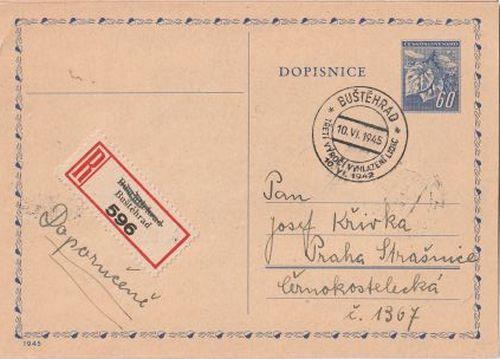 ČESKOSLOVENSKO
60
DOPISNICE
* BUŠTĚHRAD *
10.VI.1945
TŘETÍ VÝROČÍ VYHLAZENÍ LIDIC
10.VI.1942
R
Buštěhrad
596
Doporučeně
Pan
Josef Křivka
Praha Strašnice
Černokostelecká
č. 1367
1945